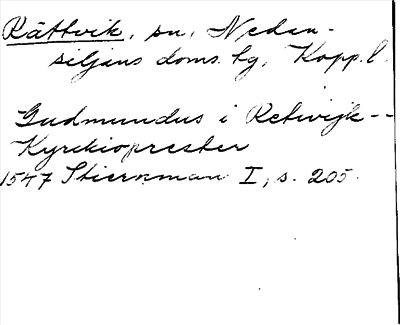 Rättvik, sn, Nedan-
siljans doms. hg, Kopp. l.
Gudmundus i Retwijk --
Kyrckioprester
1547 Stiernman I, s. 205.